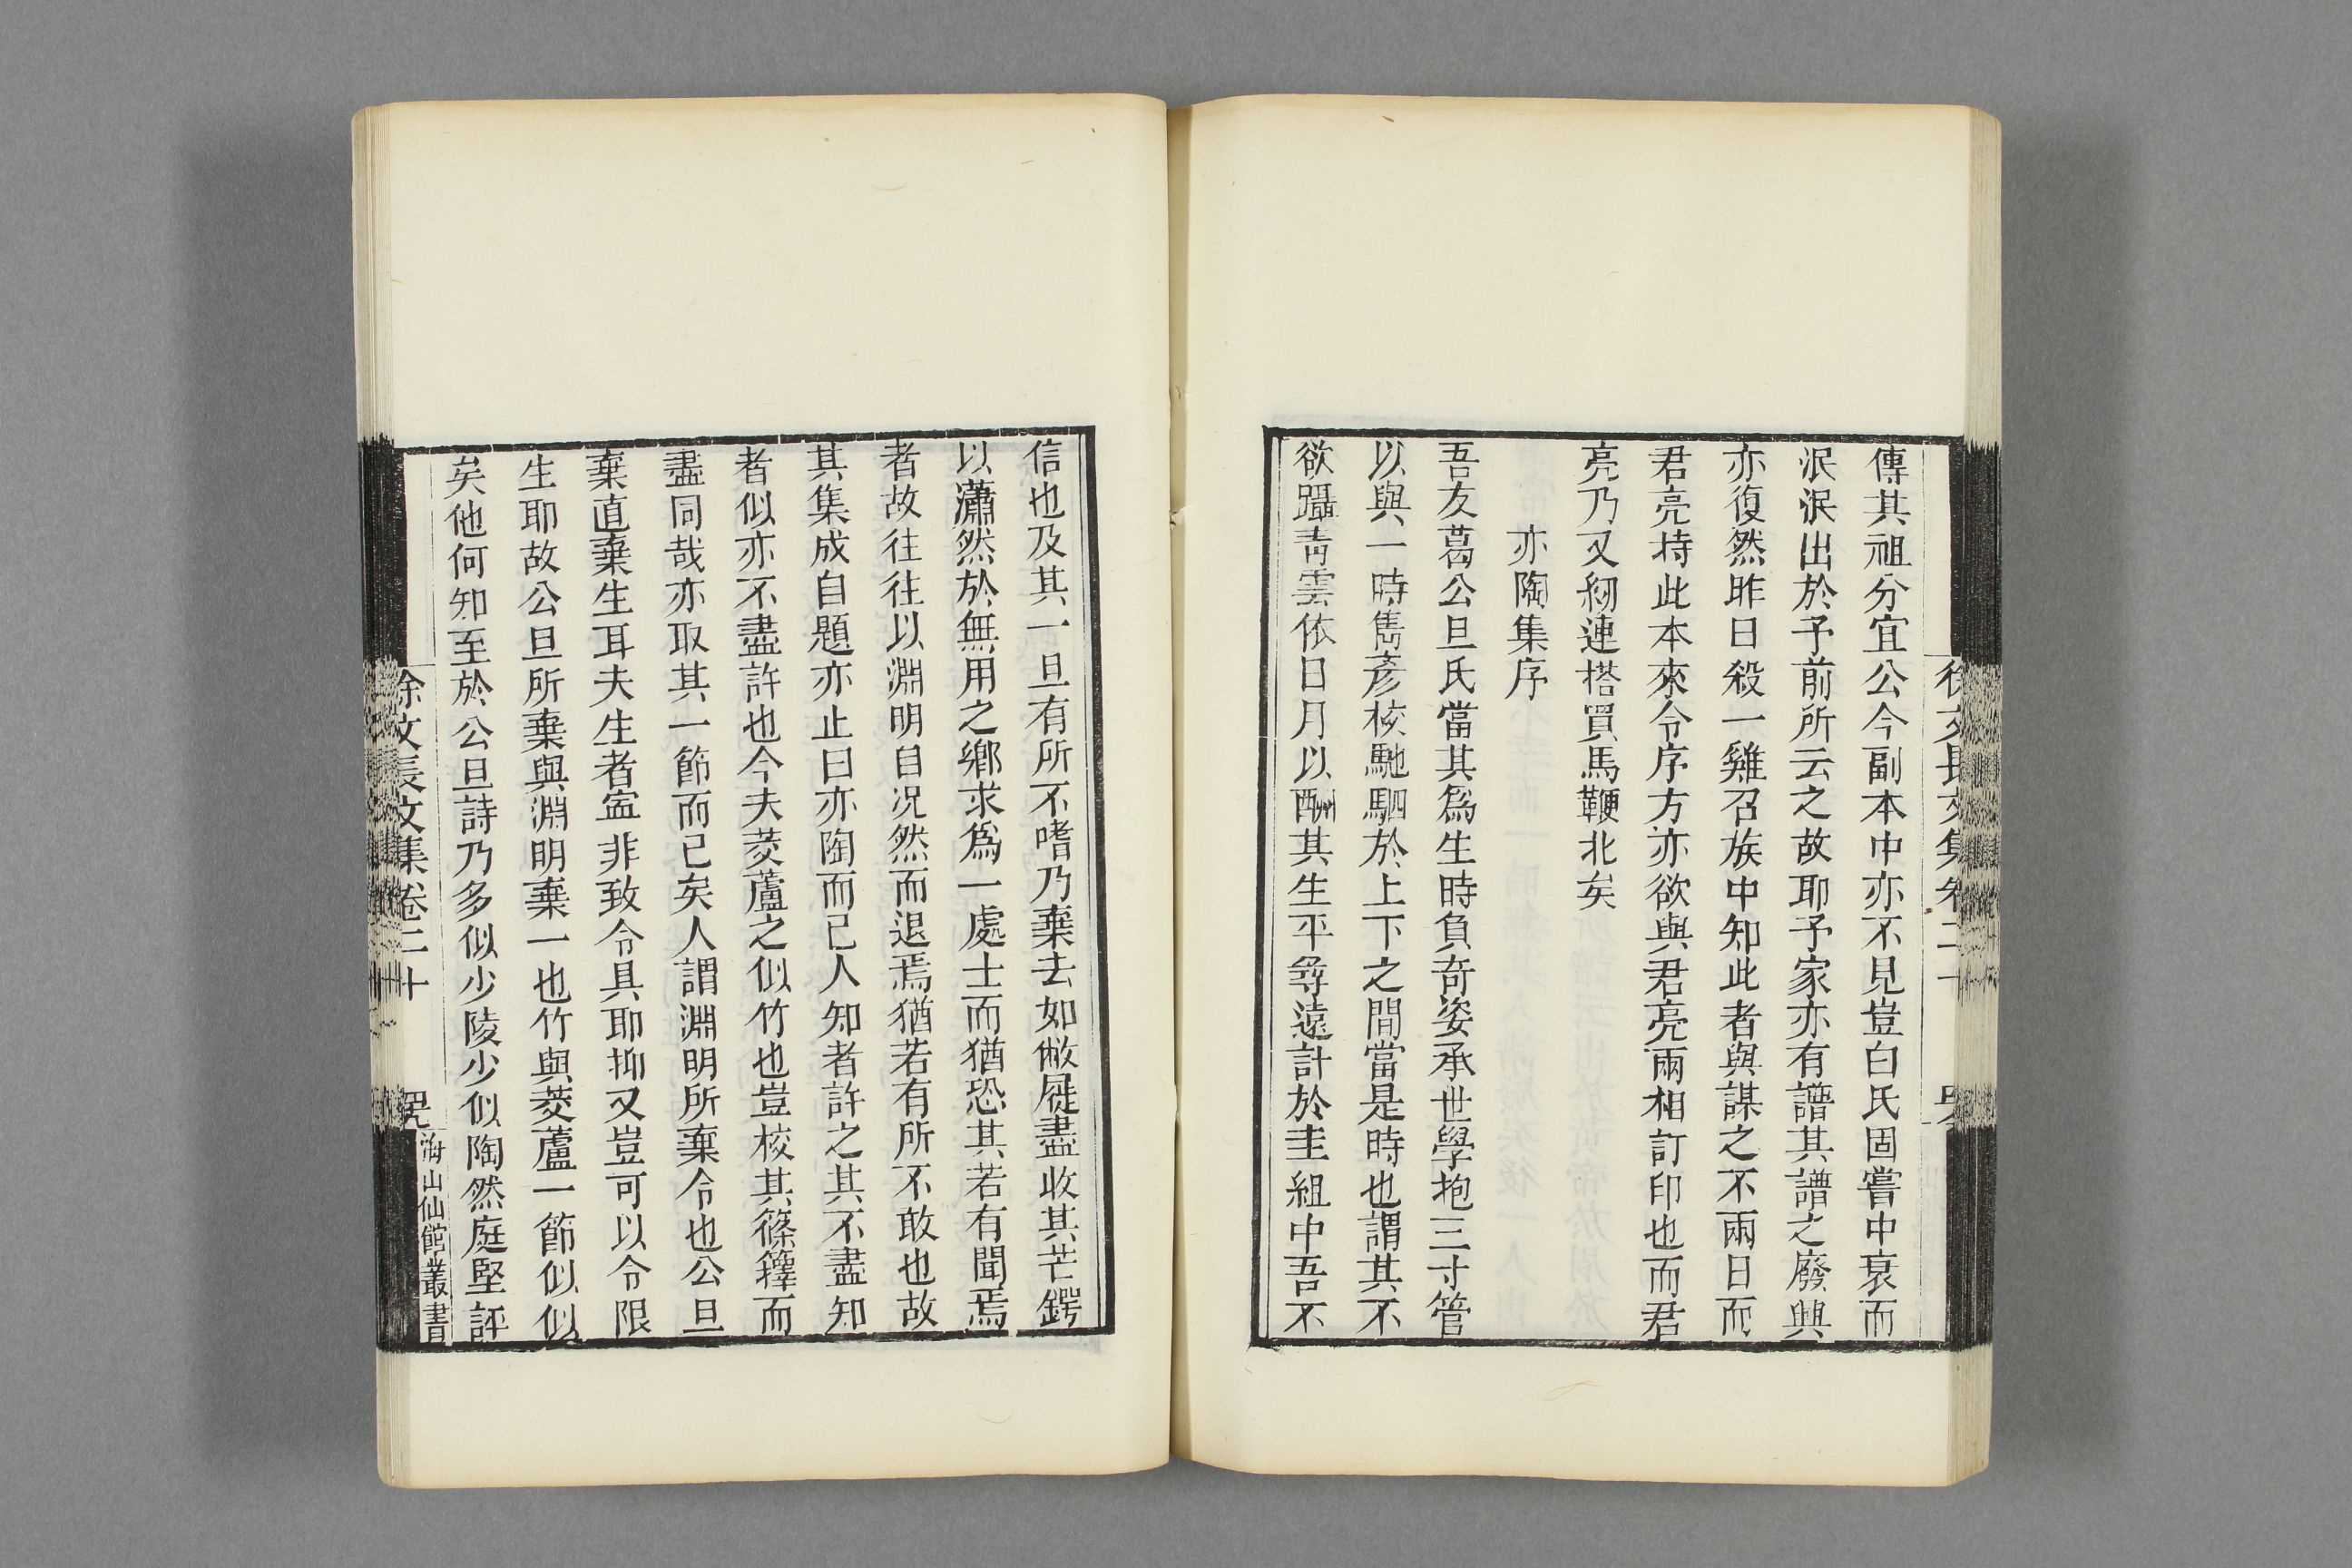 傳其祖分宜公今副本中亦不見豈白氏固嘗中衰而
泯泯出於予前所云之故耶予家亦有譜其譜之廢興
亦復然昨日殺一雞召族中知此者與謀之不兩日而
君亮持此本來令序方亦欲與君亮兩相訂印也而君
亮乃又紉連搭買馬鞭北矣
亦陶集序
吾友葛公旦氏當其爲生時負奇姿承世學抱三寸管
以與一時雋彥校馳駟於上下之間當是時也謂其不
欲躡靑雲依日月以酬其生平尋遠計於圭組中吾不
信也及其一旦有所不嗜乃棄去如敝屣盡收其芒鍔
以瀟然於無用之鄉求爲一處士而猶恐其若有聞焉
者故往往以淵明自况然而退焉猶若有所不敢也故
其集成自題亦止曰亦陶而已人知者許之其不盡知
者似亦不盡許也今夫菼蘆之似竹也豈校其篠籜而
盡同哉亦取其一節而已矣人謂淵明所棄令也公旦
棄直棄生耳夫生者寍非致令具耶抑又豈可以令限
生耶故公旦所棄與淵明棄一也竹與菼蘆一節似似
矣他何知至於公旦詩乃多似少陵少似陶然庭堅評
徐文長文集卷二十
海山仙館叢書